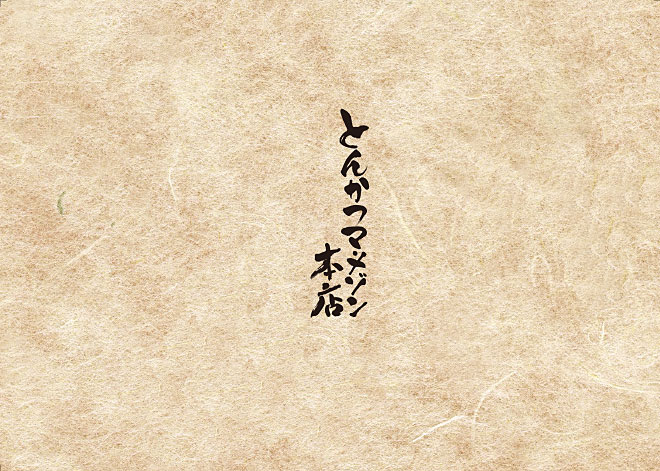 とんかつマメゾン
本店